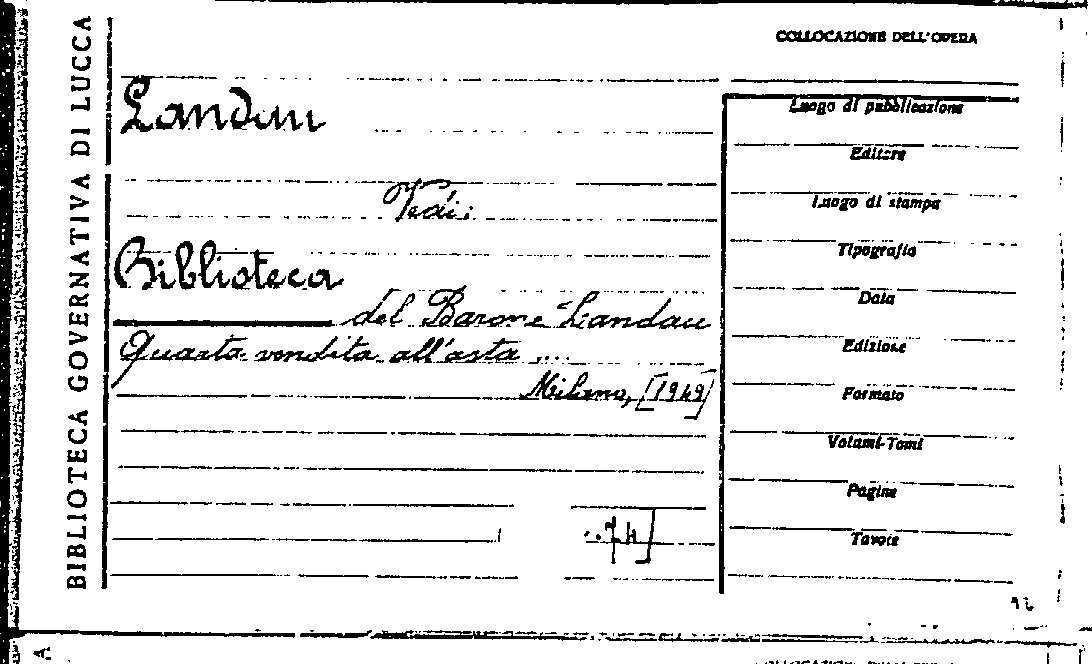 BIBLIOTECA GOVERNATIVA DI LUCCA
COLLOCAZIONE DELL'OPERA
Landau
Vedi:
Biblioteca
del Barone Landau
Quarta vendita all'asta ....
Milano, [1949]
Luogo di pubblicazione
Editore
Luogo di stampa
Tipografia
Data
Edizione
Formato
Volumi-Tomi
Pagine
Tavole